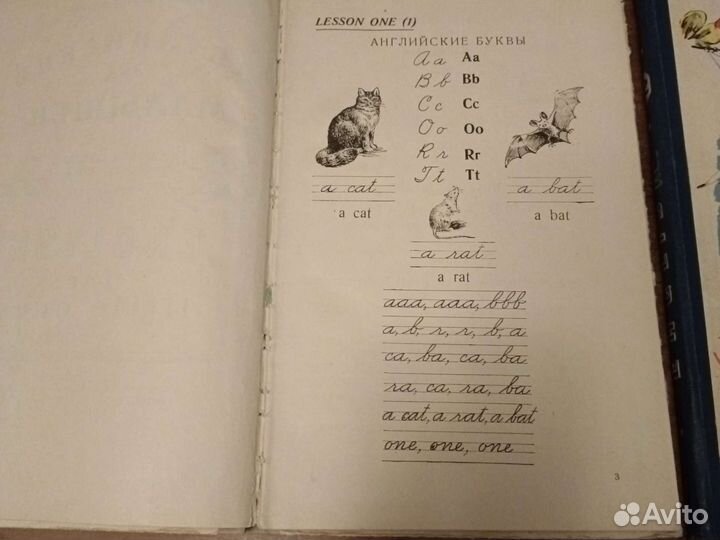 LESSON ONE (1)
АНГЛИЙСКИЕ БУКВЫ
Aa Aa
Bb Bb
Cc Cc
Oo Oo
Rr Rr
Tt Tt
a cat
a cat
a bat
a bat
a rat
a rat
aaa, aaa, bbb
a, b, r, r, b, a
ca, ba, ca, ba
ra, ca, ra, ba
a cat, a rat, a bat
one, one, one
3
Avito